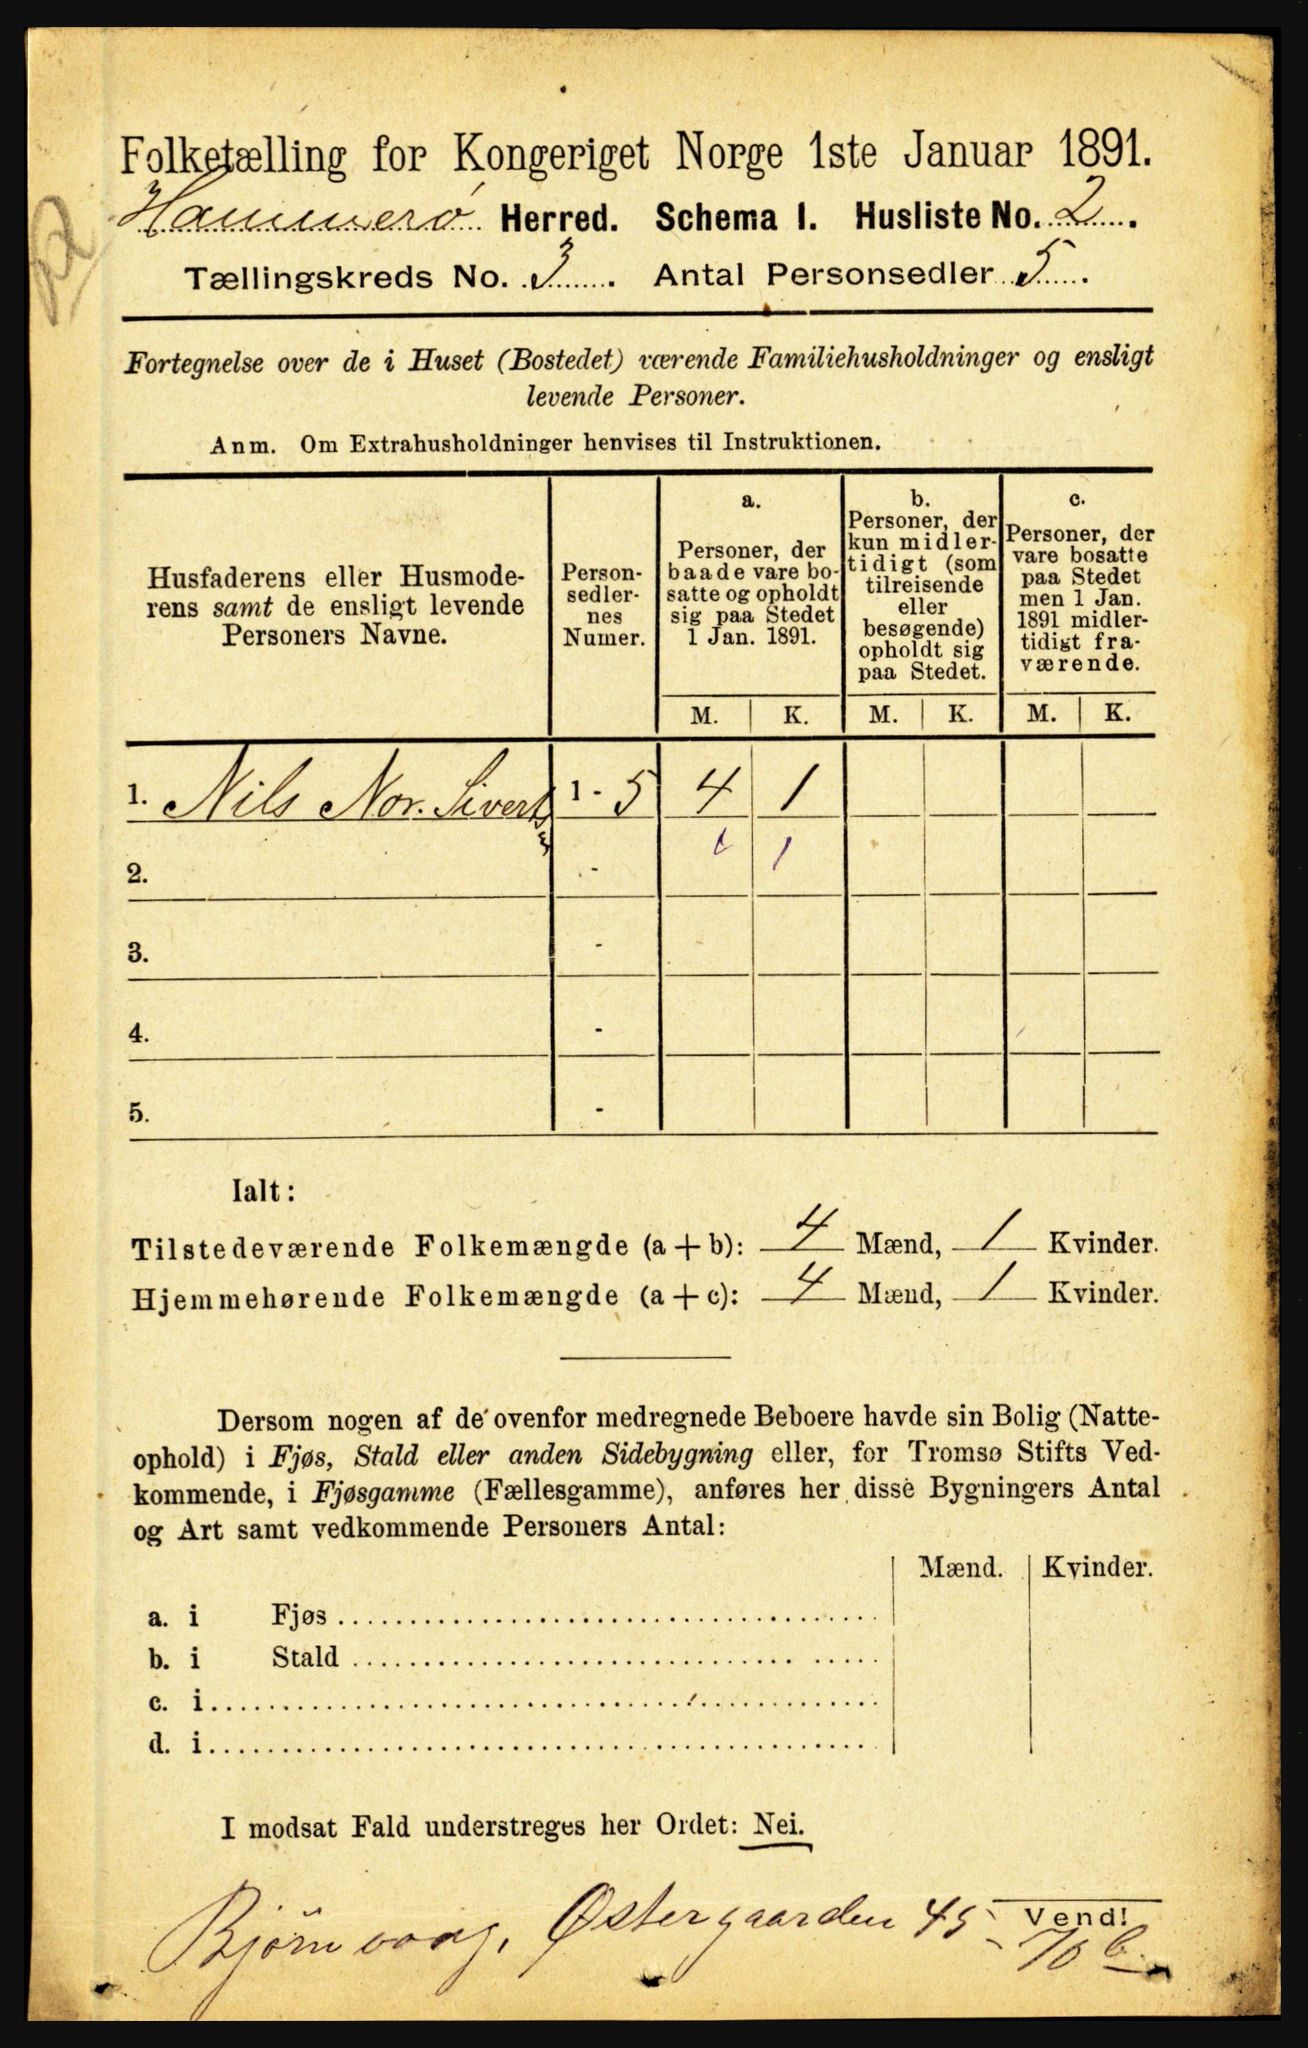 Folketælling for Kongeriget Norge 1ste Januar 1891.
Hammerø Herred. Schema I. Husliste No. 2.
Tællingskreds No. 3. Antal Personsedler 5.
Fortegnelse over de i Huset (Bostedet) værende Familiehusholdninger og ensligt
levende Personer.
Anm. Om Extrahusholdninger henvises til Instruktionen.
Husfaderens eller Husmode-
rens samt de ensligt levende
Personers Navne.
Person-
sedler-
nes
Numer.
a.
Personer, der
baade vare bo-
satte og opholdt
sig paa Stedet
1 Jan. 1891.
b.
Personer, der
kun midler-
tidigt (som
tilreisende
eller
besøgende)
opholdt sig
paa Stedet.
c.
Personer, der
vare bosatte
paa Stedet
men 1 Jan.
1891 midler-
tidigt fra-
værende.
M. K. M. K. M. K.
1. Nils Nor. Siverts 1 - 5 4 1
2. - 1
3. -
4. -
5. -
Ialt:
Tilstedeværende Folkemængde (a + b): 4 Mænd, 1 Kvinder.
Hjemmehørende Folkemængde (a + c): 4 Mænd, 1 Kvinder.
Dersom nogen af de ovenfor medregnede Beboere havde sin Bolig (Natte-
ophold) i Fjøs, Stald eller anden Sidebygning eller, for Tromsø Stifts Ved-
kommende, i Fjøsgamme (Fællesgamme), anføres her disse Bygningers Antal
og Art samt vedkommende Personers Antal:
Mænd. Kvinder.
a. i Fjøs
b. i Stald
c. i
d. i
I modsat Fald understreges her Ordet: Nei.
Vend!
Bjørnvaag, Østergaarden 45